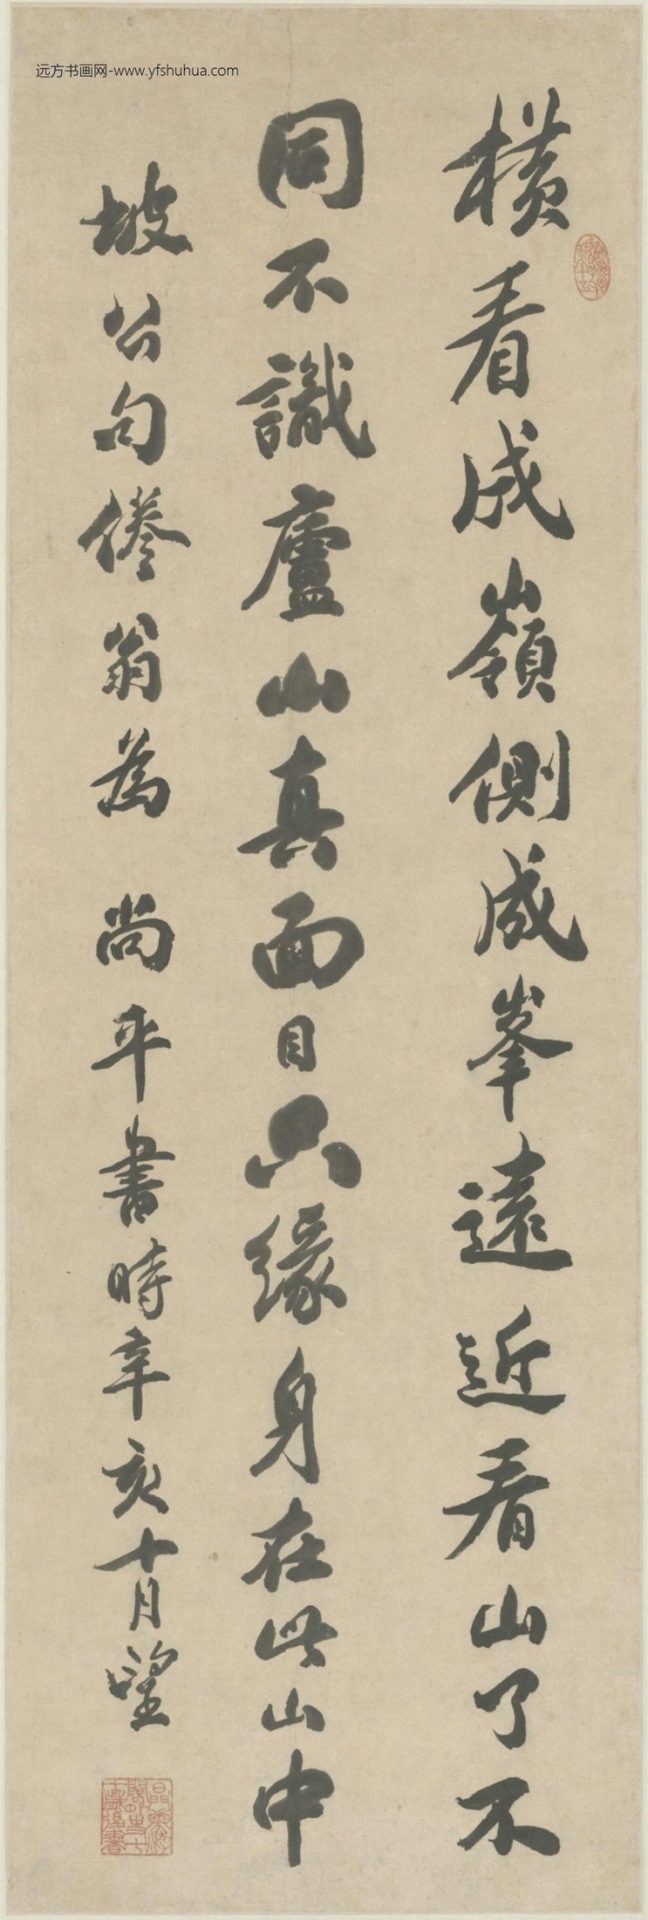 远方书画网-www.yfshuhua.com
橫看成嶺側成峯遠近看山了不
同不識廬山真面目只緣身在此山中
坡公句倦翁為 尚平書時辛亥十月望